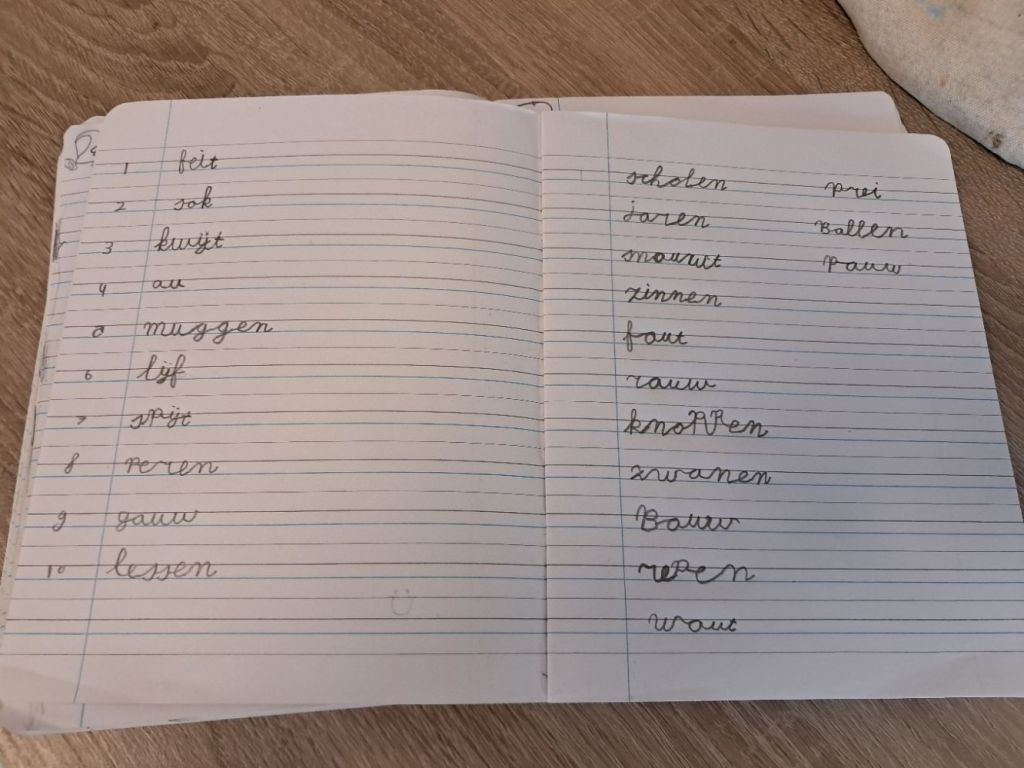 1 feit
2 sok
3 kwijt
4 au
5 muggen
6 lijf
7 spijt
8 reren
9 gauw
10 lessen
scholen prei
jaren Ballen
mourut pauw
zinnen
fout
rauw
knoppen
zwanen
Bouw
repen
wout